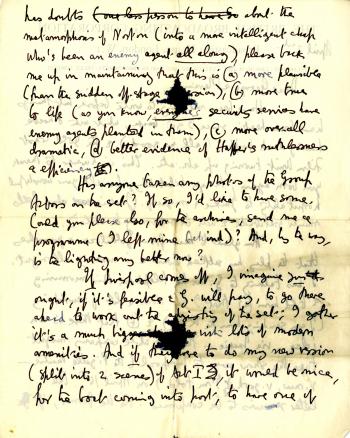 has doubts (one less person to have so about the
metamorphosis of Norton (into a more intelligent chap
who's been an enemy agent all along) please back
me up in maintaining that this is (a) more plausible
(than the sudden off-stage), (b) more true
to life (as you know, security services have
enemy agents planted in them), (c) more overall
dramatic, (d) better evidence of ruthlessness
& efficiency.
Has anyone taken any photos of the Group
Actors on the set? If so, I'd love to have some.
Could you please also, for the archives, send me a
programme (I left mine behind)? And, by the way,
is the lighting any better now?
If Liverpool comes off, I imagine
ought, if it's feasible & G. will pay, to go there
ahead to work out the of the set; I
it's a much with lots of modern
amenities. And if they to do my new version
(split into 2 scenes) of Act I, it would be nice,
for the boat coming into port, to have one of